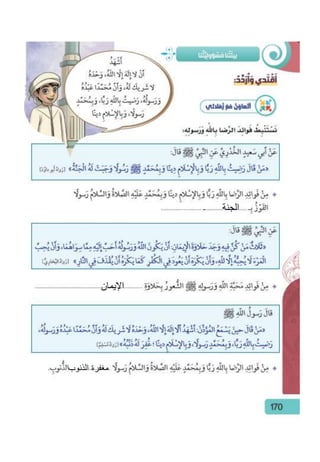 بيئتنا مسؤوليتنا
أَقْتَدِي وَأُرَدِّدُ:
أَشْهَدُ
أَنْ لَا إِلَهَ إِلَّا اللهُ، وَحْدَهُ
لَا شَرِيكَ لَهُ، وَأَنَّ مُحَمَّدًا عَبْدُهُ
وَرَسُولُهُ، رَضِيتُ بِاللهِ رَبًّا، وَبِمُحَمَّدٍ
رَسُولًا، وَبِالْإِسْلَامِ دِينًا
أتعاون مع زملائي
نَسْتَنْبِطُ فَوَائِدَ الرِّضَا بِاللهِ وَرَسُولِهِ:
عَنْ أَبِي سَعِيدٍ الْخُدْرِيِّ عَنِ النَّبِيِّ ﷺ قَالَ:
«مَنْ قَالَ رَضِيتُ بِاللهِ رَبًّا وَبِالْإِسْلَامِ دِينًا وَبِمُحَمَّدٍ ﷺ رَسُولًا وَجَبَتْ لَهُ الْجَنَّةُ» (رَوَاهُ أَبُو دَاوُدَ)
* مِنْ فَوَائِدِ الرِّضَا بِاللهِ رَبًّا وَبِالْإِسْلَامِ دِينًا وَبِمُحَمَّدٍ عَلَيْهِ الصَّلَاةُ وَالسَّلَامُ رَسُولًا
الْفَوْزُ بِـ ..... الجنة .....
عَنِ النَّبِيِّ ﷺ قَالَ:
«ثَلَاثٌ مَنْ كُنَّ فِيهِ وَجَدَ حَلَاوَةَ الْإِيمَانِ: أَنْ يَكُونَ اللهُ وَرَسُولُهُ أَحَبَّ إِلَيْهِ مِمَّا سِوَاهُمَا، وَأَنْ يُحِبَّ
الْمَرْءَ لَا يُحِبُّهُ إِلَّا لِلهِ، وَأَنْ يَكْرَهَ أَنْ يَعُودَ فِي الْكُفْرِ كَمَا يَكْرَهُ أَنْ يُقْذَفَ فِي النَّارِ» (رَوَاهُ الْبُخَارِيُّ)
* مِنْ فَوَائِدِ مَحَبَّةِ اللهِ وَرَسُولِهِ ﷺ الشُّعُورُ بِحَلَاوَةِ ..... الإيمان .....
قَالَ رَسُولُ اللهِ ﷺ
«مَنْ قَالَ حِينَ يَسْمَعُ الْمُؤَذِّنَ: أَشْهَدُ أَنْ لَا إِلَهَ إِلَّا اللهُ، وَحْدَهُ لَا شَرِيكَ لَهُ وَأَنَّ مُحَمَّدًا عَبْدُهُ وَرَسُولُهُ،
رَضِيتُ بِاللهِ رَبًّا، وَبِمُحَمَّدٍ رَسُولًا، وَبِالْإِسْلَامِ دِينًا؛ غُفِرَ لَهُ ذَنْبُهُ» (رَوَاهُ مُسْلِمٌ)
* مِنْ فَوَائِدِ الرِّضَا بِاللهِ رَبًّا وَبِالْإِسْلَامِ دِينًا وَبِمُحَمَّدٍ عَلَيْهِ الصَّلَاةُ وَالسَّلَامُ رَسُولًا .مغفرة الذنوب.الذُّنُوبِ.
170